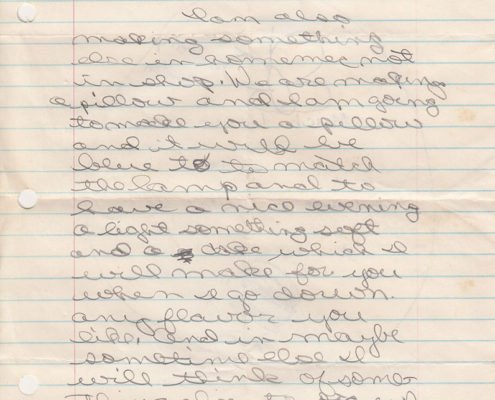 I am also
making something
else in home mec not
in shop. We are making
a pillow and I am going
to make you a pillow
and it will be
blue to to match
the lamp and to
have a nice evening
a light something soft
and a cake, which I
will make for you
when I go down.
any flavor you
like, and in maybe
sometime else I
will think of some